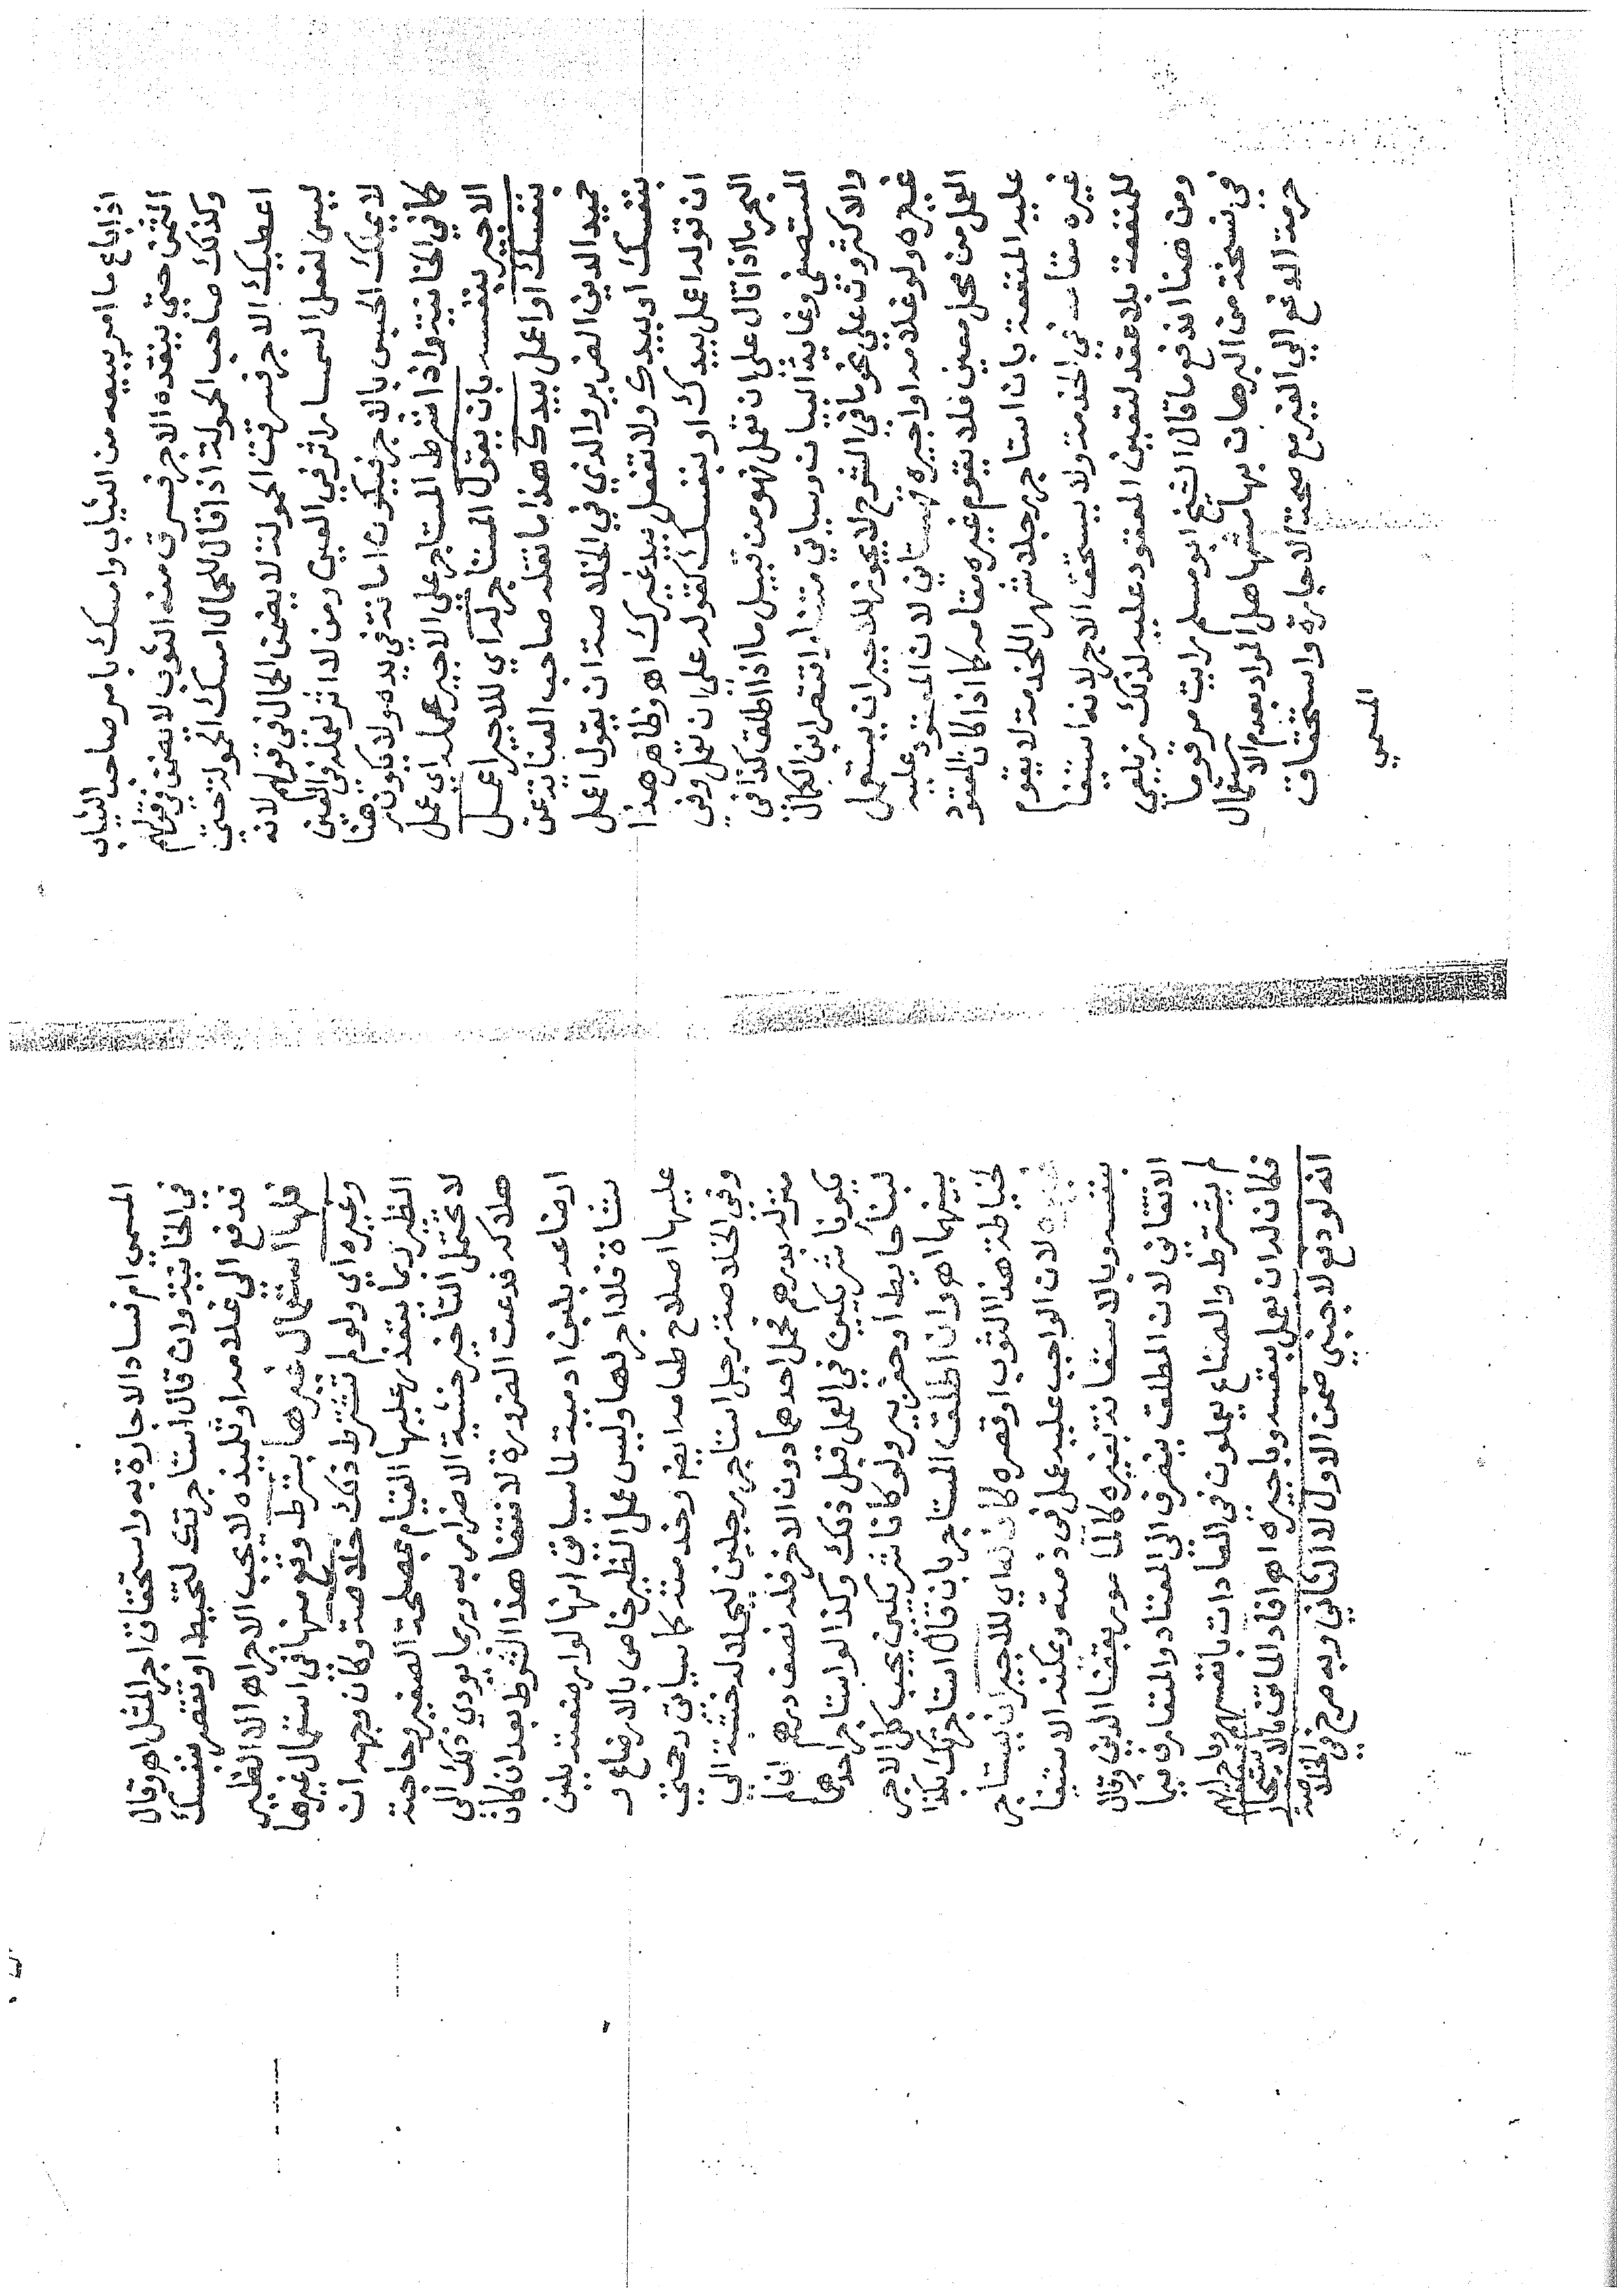 اذا باع ما امر ببيعه من الثياب وامسك بامر صاحب الثياب
الثمن حتي ينقده الاجر فسرق منه الثمن لا يضمن في قولهم
وكذلك صاحب الحمولة اذا قال للحمال امسك الحمولة حتي
اعطيك الاجر فسرقت الحمولة لا يضمن الحمال في قولهم لانه
ليس لفعل السمسار اثر في العين ومن لا اثر لفعله في العين
لا يملك الحبس بالاجر فيكون امانة في يده ولا يكون رهنا
كما في الخانية واذا شرط المستاجر على الاجير عمله اي عمل
الاجير بنفسه بان يقول المستاجر له اي للاجير اعمل
بنفسك او اعمل بيدك هذا ما نقله صاحب العناية عن
حميد الدين الضرير والذي في الخلاصة ان يقول اعمل
بنفسك او بيدك ولا تعمل بيد غيرك اه وظاهر هذا
ان قوله اعمل بيدك او بنفسك كقوله على ان تعمل وفي
البحر ما اذا قال على ان تعمل فهو من قبيل ما اذا اطلق كذا في
المستصفى وغاية البيان وسياتي متنا واقتصر ابن الكمال
والاكثرون على نحو ما في الشرح لا يجوز للاجير ان يستعمل
غيره ولو غلامه او اجيره قهستاني لان المعقود عليه
العمل من محل معين فلا يقوم غيره مقامه كما اذا كان المعقود
عليه المنفعة بان استاجر رجلا شهرا للخدمة لا يقوم
غيره مقامه في الخدمة ولا يستحق الاجر لانه استيفا
للمنفعة بلا عقد لتعين المعقود عليه لذلك زيلعي
ومن هنا اندفع ما قال الشيخ ابو مسلم رايت مرقوما
في نسخة من البرهان بهامشها هل المراد بعدم الاستعمال
حرمة الدفع الي الغير مع صحة الاجارة واستحقاق
المسمي
المسمي ام فساد الاجارة به واستحقاق اجر المثل اه وقال
في الخانية ولان قال استاجرتك لتخيط او تقصر بنفسك
فدفع الي غلامه او تلميذه لا يجب الاجر اه الا الظير
فلها استعمال غيرها بشرط وقع منها في استعمال غيرها
وغيره اي ولو لم تشترط ذلك خلاصة وكأن وجهه ان
الظير ربما يتعذر عليها القيام بمصلحة الصغير وحاجته
لا تحتمل التاخير خشية الاضرار به وربما يودي ذلك الي
هلاكه فدعت الضرورة لانتفا هذا الشرط بعد ان كان
ارضاعه بلبن ادمية لما سياتي انها لو ارضعته بلبن
شاة فلا اجر لها وليس عمل الظير خاص بالارضاع و
عليها اصلاح طعامه ايضا وخدمته كما سياتي رحمتي
وفي الخلاصة رجل استاجر رجلين ليحملا له خشبة الي
منزله بدرهم فحمل احدهما دون الاخر فله نصف درهم اذا لم
يكونا شريكين في العمل قبل ذلك وكذا لو استاجر احدهما
لبنا حايط او حفر بير ولو كانا شريكين يجب كل الاجر
بينهما اه وان اطلق المستاجر بان قال استاجرتك بكذا
لخياطة هذا الثوب او قصره كان له اي للاجير ان يستاجر
غيره لان الواجب عليه عمل في ذمته ويمكنه الاستيفا
بنفسه وبالاستعانة بغيره كالمامور بقضا الدين وقال
الاتقاني لان المطلق ينصرف الي المعتاد والمتعارف فيما
لم يشترط والصناع يعملون في العادات بانفسهم وباجرايهم
فكان له ان يعمل بنفسه وباجيره اه افاد الماتن بالاستيجار
انه لو دفع لاجنبي ضمن الاول لا الثاني وبه صرح في الخلاصة